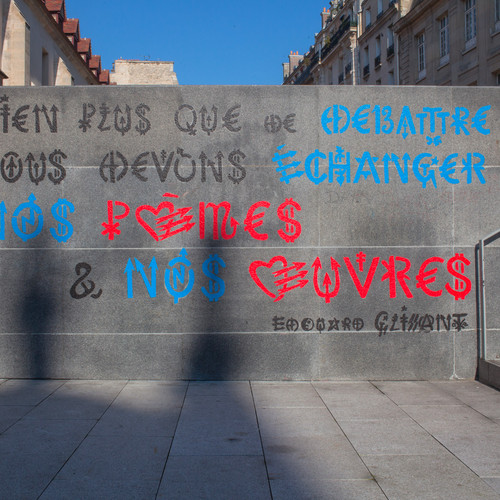 IEN PLUS QUE DE DEBATTRE
OUS DEVONS ÉCHANGER
NOS POÈMES
& NOS ŒUVRES
EDOUARD GLISSANT